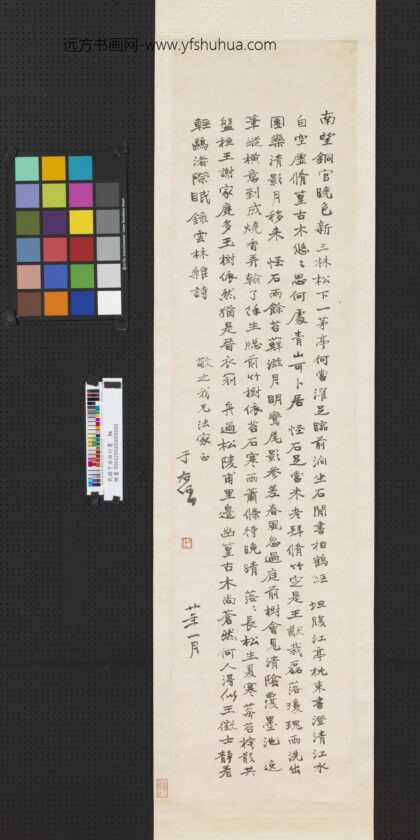 远方书画网-www.yfshuhua.com
南望銅官晚色新三株松下一茅亭何當濯足臨前泊坐石閒書相鶴經 坦腹江亭枕束書澄清江水
自空虛脩篁古木悠〻思何處青山可卜居 怪石足當米老拜脩竹定是王猷栽磊落瓊瑰雨洗出
團欒清影月移來 怪石雨餘苔蘚滋月明鸞尾影參差春風忽過庭前樹會見清陰覆墨池 逸
筆縱橫意到成燒香弄翰了餘生窓前竹樹依苔石寒雨蕭條待晚晴 落〻長松生夏寒莓苔樗散共
盤桓王謝家庭多玉樹依然猶是晉衣冠 舟過松陵甫里邊幽篁古木尚蒼然何人得似王徵士靜看
輕鷗渚際眠 錄雲林雜詩
敬之我兄法家正
于右任
廿年一月